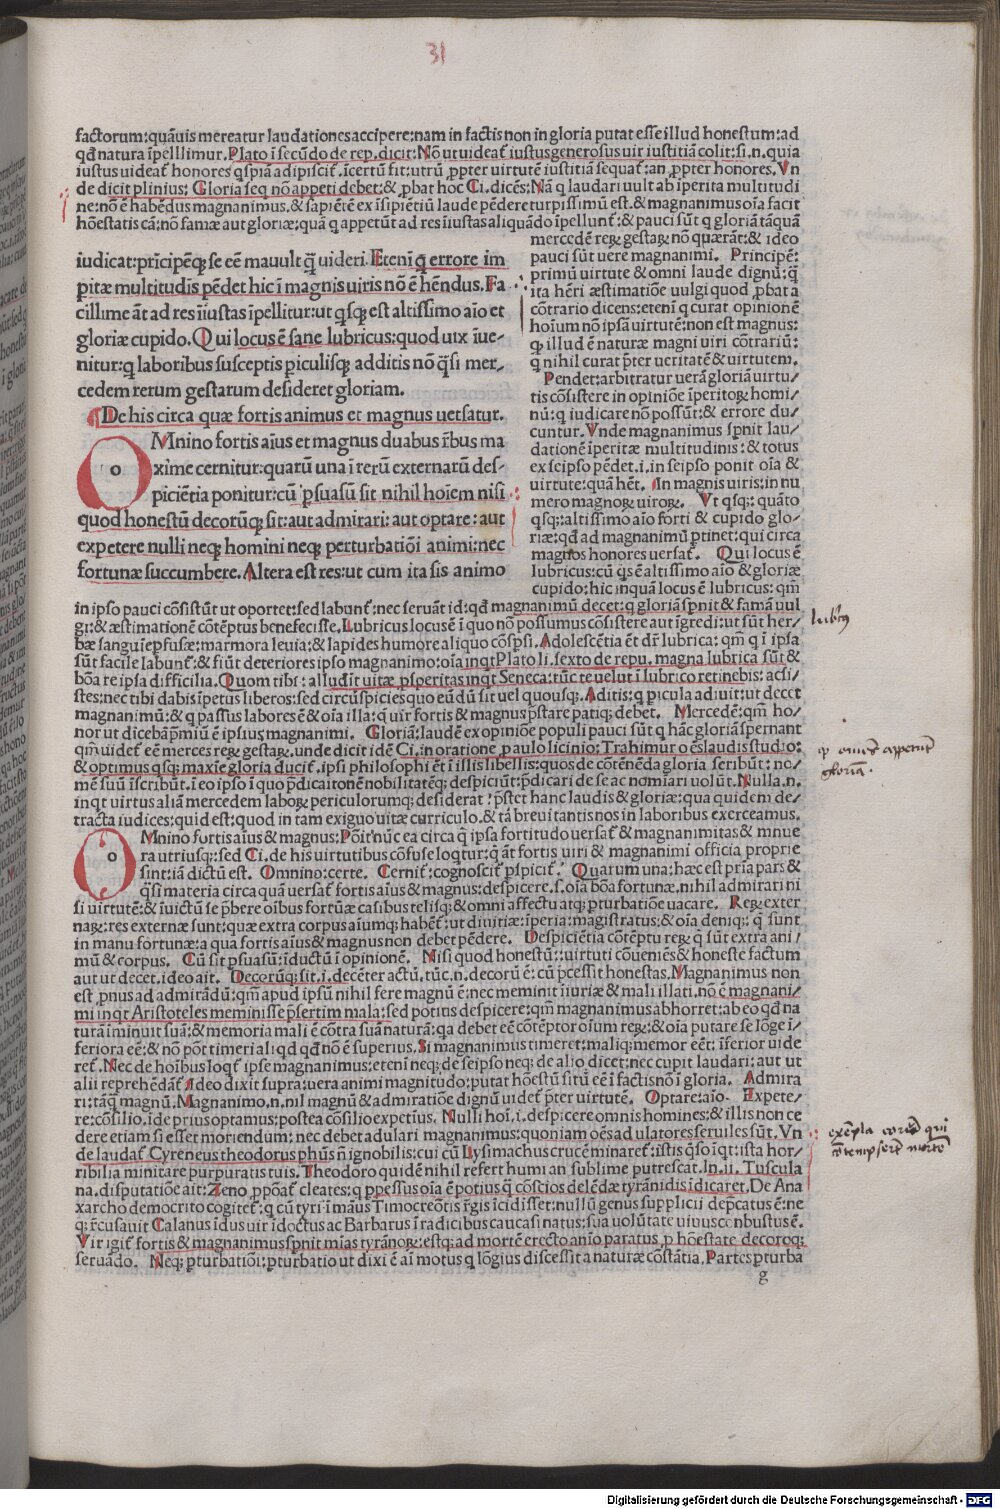 31
factorum:quãuis mereatur laudationes accipere:nam in factis non in gloria putat esse illud honestum:ad
qđ natura ĩpelllimur. Plato ĩ secũdo de rep. dicit: Nõ ut uideat̃ iustus generosus uir iustitiã colit:si.n.quia
iustus uideat̃ honores q̃spiã adipiscit̃.ĩcertũ fit:utrũ ꝓpter uirtutẽ iustitiã sequat̃:an ꝓpter honores. Vn
de dicit plinius: Gloria seq̃ nõ appeti debet:& ꝓbat hoc Ci. dicẽs: Nã q laudari uult ab ĩperita multitudi
ne:nõ ẽ habẽdus magnanimus.& sapiẽtẽ ex ĩsipiẽtiũ laude pẽdere turpissimũ est.& magnanimus oĩa facit
hõestatis cã:nõ famæ aut gloriæ:quã q appetũt ad res iiustas aliquãdo ĩpellunt̃:& pauci sũt q gloriã tãquã
iudicat:prĩcipẽq; se eẽ mauult q̃ uideri. Etenĩ q̃ errore im
pitæ multitudĩs pẽdet hic ĩ magnis uiris nõ ẽ hẽndus. Fa
cillime ãt ad res iiustas ĩpellitur:ut q̃sq; est altissimo aĩo et
gloriæ cupido. Qui locus ẽ sane lubricus:quod uix ĩue-
nitur:q laboribus susceptis piculisq; additis nõ q̃si mer-
cedem rerum gestarum desideret gloriam.
¶ De his circa quæ fortis animus et magnus uersatur.
O
MNino fortis aĩus et magnus duabus rẽbus ma
xime cernitur:quarũ una ĩ rerũ externarũ des-
piciẽtia ponitur:cũ ꝓsuasũ sit nihil hoĩem nisi
quod honestũ decorũq; sit:aut admirari: aut optare: aut
expetere nulli neq; homini neq; perturbatiõi animi:nec
fortunæ succumbere. Altera est res:ut cum ita sis animo
mercedẽ reꝝ gestaꝝ nõ quærãt:& ideo
pauci sũt uere magnanimi. Principẽ:
primũ uirtute & omni laude dignũ:q̃
ita hẽri æstimatiõe uulgi quod ꝓbat a
cõtrario dicens:etenĩ q curat opinionẽ
hoĩum nõ ipsã uirtutẽ:non est magnus:
qꝫ illud ẽ naturæ magni uiri cõtrariũ:
q nihil curat p̃ter ueritatẽ & uirtutem.
Pendet:arbitratur uerã gloriã uirtu/
tis cõsistere in opiniõe ĩperitoꝝ homi/
nũ:q iudicare nõ possũt:& errore du/
cuntur. Vnde magnanimus spnit lau/
dationẽ ĩperitæ multitudinis:& totus
ex seipso pẽdet.i.in seipso ponit oĩa &
uirtute:quã hẽt. In magnis uiris:in nu
mero magnoꝝ uiroꝝ. Vt qsq;: quãto
qsq;:altissimo aĩo forti & cupido glo/
riæ:qđ ad magnanimũ ptinet:qui circa
magnos honores uersat̃. Qui locus ẽ
lubricus:cũ q̃s ẽ altissimo aĩo & gloriæ
cupido:hic inquã locus ẽ lubricus: qm̃
in ipso pauci cõsistũt ut oportet:sed labunt̃:nec seruãt id:qđ magnanimũ decet:q gloriã spnit & famã uul
gi:& æstimationẽ cõtẽptus benefecisse. Lubricus locus ẽ ĩ quo nõ possumus cõsistere aut ĩgredi:ut sũt her/
bæ sanguĩe ꝑfusæ:marmora leuia:& lapides humore aliquo cõspsi. Adolescẽtia ẽt dr̃ lubrica: qm̃ q ĩ ipsa
sũt facile labunt̃:& fiũt deteriores ipso magnanimo:oĩa inqt Plato li.sexto de repu. magna lubrica sũt &
bõa re ipsa difficilia. Quom tibi: alludĩt uitæ psperitas inqt Seneca:tũc te uelut ĩ lubrico retinebis: acsi/
stes:nec tibi dabis ĩpetus liberos:sed circũspicies quo eũdũ sit uel quousq;. Aditis:q picula adiuit:ut decet
magnanimũ:& q passus labores ẽ & oĩa illa:q̃ uir fortis & magnus p̃stare patiq; debet. Mercedẽ:qm̃ ho/
nor ut dicebã p̃miũ ẽ ipsius magnanimi. Gloriã:laudẽ ex opiniõe populi pauci sũt q hãc gloriã spernant
qm̃ uidet̃ eẽ merces reꝝ gestaꝝ.unde dicit idẽ Ci.in oratione paulo licinio:Trahimur oẽs laudis studio:
& optimus qsq; maxĩe gloria ducit̃.ipsi philosophi ẽt ĩ illis libellis:quos de cõtẽnẽda gloria scribũt: no/
mẽ suũ ĩscribũt.ĩ eo ipso ĩ quo p̃dicationẽ nobilitatẽq; despiciũt:p̃dicari de se ac nomĩari uolũt. Nulla.n.
inqt uirtus aliã mercedem laboꝝ periculorumq; desiderat p̃ter hanc laudis & gloriæ:qua quidem de/
tracta iudices:quid est:quod in tam exiguo uitæ curriculo.& tã breui tantis nos in laboribus exerceamus.
O
MNino fortis aĩus & magnus: Põit nũc ea circa q̃ ipsa fortitudo uersat̃ & magnanimitas & mnue
ra utriusq;:sed Ci.de his uirtutibus cõfuse loqtur:q̃ ãt fortis uiri & magnanimi officia proprie
sint:iã dictũ est. Omnino:certe. Cernit̃:cognoscit̃ pspicit̃. Quarum una:hæc est prĩa pars &
q̃si materia circa quã uersat̃ fortis aĩus & magnus:despicere.s.oĩa bõa fortunæ.nihil admirari ni
si uirtutẽ:& ĩuictũ se p̃bere oĩbus fortũæ casibus telisq;:& omni affectu atq; pturbatiõe uacare. Reꝝ exter
naꝝ:res externæ sunt:quæ extra corpus aĩumq; habẽt̃:ut diuitiæ:ĩperia:magistratus:& oĩa deniq;: q̃ sunt
in manu fortunæ:a qua fortis aĩus & magnus non debet pẽdere. Despiciẽtia cõtẽptu reꝝ q̃ sũt extra ani/
mũ & corpus. Cũ sit psuasũ:ĩductũ ĩ opinionẽ. Nisi quod honestũ::uirtuti cõueniẽs & honeste factum
aut ut decet.ideo ait. Decorũq; sit.i.decẽter actũ.tũc.n.decorũ ẽ:cũ p̃cessit honestas. Magnanimus non
est ꝓnus ad admirãdũ:qm̃ apud ipsũ nihil fere magnũ ẽ:nec meminit ĩiuriæ & mali illati.nõ ẽ magnani/
mi inqt Aristoteles meminisse p̃sertim mala:sed potius despicere:qm̃ magnanimus abhorret:ab eo qđ na
turã ĩminuit suã:& memoria mali ẽ cõtra suã naturã:qa debet eẽ cõtẽptor oĩum reꝝ:& oĩa putare se lõge ĩ/
feriora eẽ:& nõ põt timeri aliqd qđ nõ ẽ superius. Si magnanimus timeret:maliq; memor eẽt: ĩferior uide
ret̃. Nec de hoĩbus loqt̃ ipse magnanimus:etenĩ neq; de seipso neq; de alio dicet:nec cupit laudari: aut ut
alii reprehẽdãt̃ Ideo dixit supra:uera animi magnitudo:putat hõestũ sitũ eẽ ĩ factis nõ ĩ gloria. Admira
ri:tãq̃ magnũ. Magnanimo.n.nil magnũ & admiratiõe dignũ uidet̃ p̃ter uirtutẽ. Optare:aĩo. Expete/
re:cõsilio.ide prius optamus:postea cõsilio expetĩus. Nulli hoĩ.i.despicere omnis homines:& illis non ce
dere etiam si esset moriendum: nec debet adulari magnanimus:quoniam oẽs adulatores seruiles sũt. Vn
de laudat̃ Cyreneus theodorus phũs ñ ignobilis:cui cũ Lysimachus crucẽ minaret̃:istis q̃so iqt:ista hor/
ribilia minitare purpuratis tuis. Theodoro quidẽ nihil refert humi an sublime putrescat. In.ii. Tuscula
na.disputatiõe ait: Zeno ppõat̃ cleates:q ppessus oĩa ẽ potius q̃ cõscios delẽdæ tyrãnidis ĩdicaret. De Ana
xarcho democrito cogitet̃:q cũ tyri ĩ maũs Timocreõtis r̃gis ĩcidisset:nullũ genus supplicii dep̃catus ẽ:ne
q; r̃cusauit Calanus ĩdus uir ĩdoctus ac Barbarus ĩ radicibus caucasi natus:sua uolũtate uiuus conbustus ẽ.
Vir igit̃ fortis & magnanimus spnit mĩas tyrãnoꝝ:estq; ad mortẽ erecto anĩo paratus p hõestate decoroq;
seruãdo. Neq; pturbatiõi:pturbatio ut dixi ẽ aĩ motus q lõgius discessit a naturæ cõstãtia. Partes pturba
g
exẽpla eorũ qui
cõtempserũt mortẽ
Digitalisierung gefördert durch die Deutsche Forschungsgemeinschaft - DFG